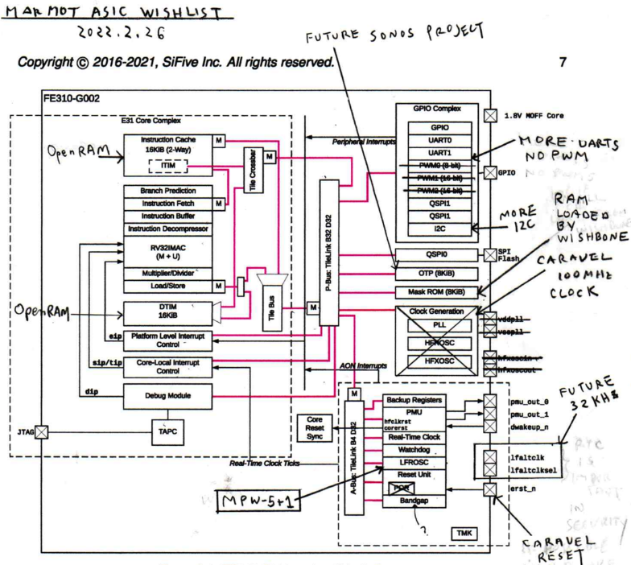 MARMOT ASIC WISHLIST
2022.2.26
FUTURE SONOS PROJECT
Copyright © 2016-2021, SiFive Inc. All rights reserved.
7
FE310-G002
E31 Core Complex
OpenRAM
Instruction Cache
16KiB (2-Way)
ITIM
M
Branch Prediction
Instruction Fetch
M
Instruction Buffer
Instruction Decompressor
RV32IMAC
(M + U)
Multiplier/Divider
Load/Store
M
OpenRAM
DTIM
16KiB
sip
Platform Level Interrupt
Control
sip/tip
Core-Local Interrupt
Control
dip
Debug Module
JTAG
TAPC
Tile Crossbar
M
Tile Bus
M
Peripheral Interrupts
P-Bus: TileLink B32 D32
GPIO Complex
GPIO
UART0
UART1
PWM0 (8-bit)
PWM1 (16-bit)
PWM2 (16-bit)
QSPI1
QSPI1
I2C
1.8V MOFF Core
MORE UARTS
NO PWM
GPIO
MORE
I2C
RAM
LOADED
BY
WISHBONE
QSPI0
SPI
Flash
OTP (8KiB)
Mask ROM (8KiB)
CARAVEL
100MHz
CLOCK
Clock Generation
PLL
HFROSC
HFXOSC
vddpll
vsspll
hfxoscin
hfxoscout
AON Interrupts
M
A-Bus: TileLink B4 D32
Core
Reset
Sync
Real-Time Clock Ticks
Backup Registers
PMU
hfclkrst
corerst
Real-Time Clock
Watchdog
LFROSC
Reset Unit
POR
Bandgap
?
TMK
MPW-5+1
pmu_out_0
pmu_out_1
dwakeup_n
FUTURE
32KHz
lfaltclk
lfaltclksel
erst_n
CARAVEL
RESET